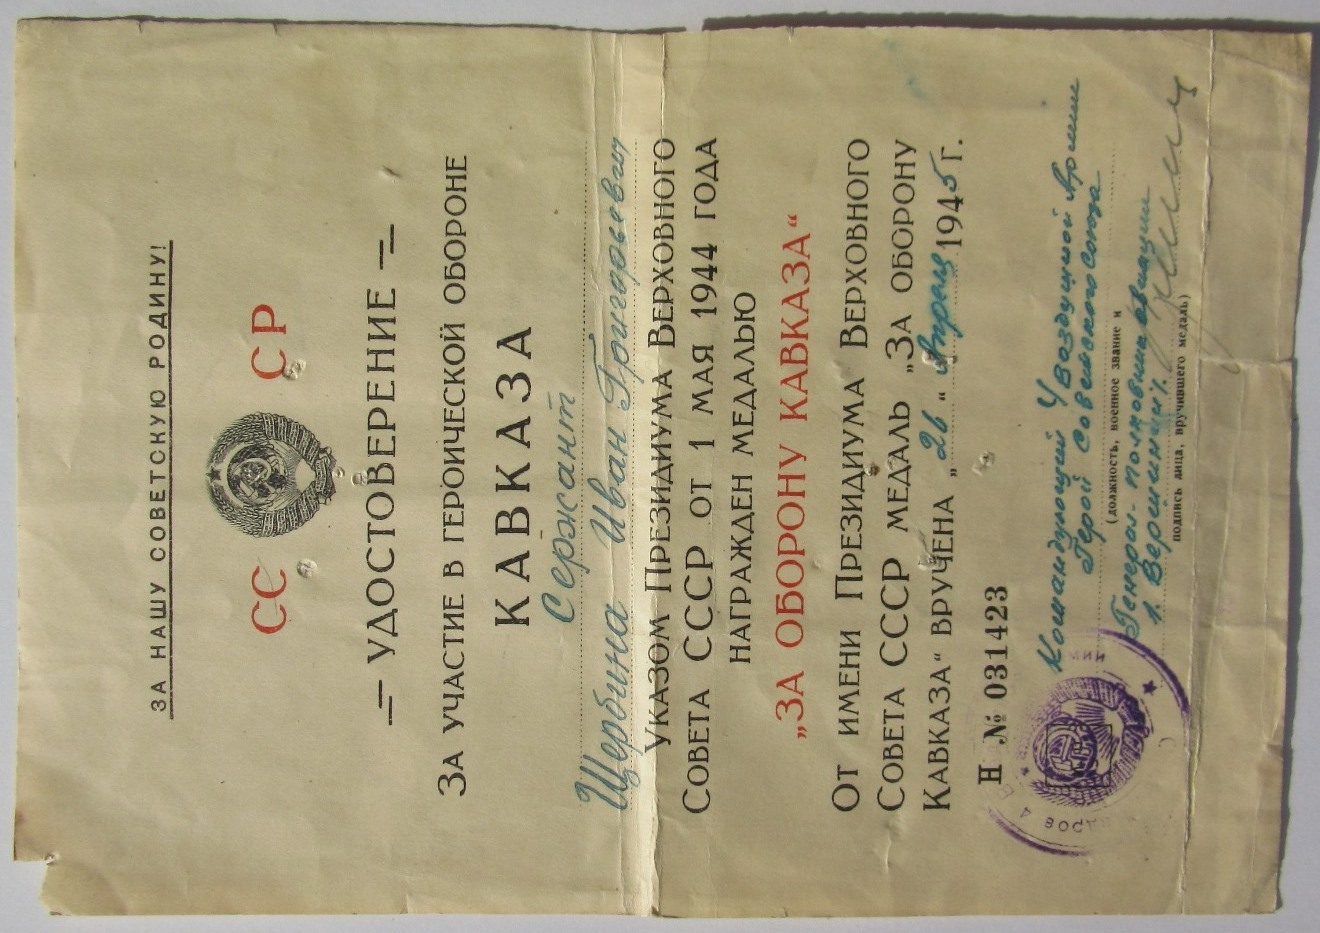 ЗА НАШУ СОВЕТСКУЮ РОДИНУ!
СС СР
УДОСТОВЕРЕНИЕ
ЗА УЧАСТИЕ В ГЕРОИЧЕСКОЙ ОБОРОНЕ
КАВКАЗА
Сержант
Щербина Иван Григорьевич
УКАЗОМ ПРЕЗИДИУМА ВЕРХОВНОГО
СОВЕТА СССР ОТ 1 МАЯ 1944 ГОДА
НАГРАЖДЕН МЕДАЛЬЮ
„ЗА ОБОРОНУ КАВКАЗА“
ОТ ИМЕНИ ПРЕЗИДИУМА ВЕРХОВНОГО
СОВЕТА СССР МЕДАЛЬ „ЗА ОБОРОНУ
КАВКАЗА“ ВРУЧЕНА „26“ Апреля 1945 г.
Н № 031423
Командующий 4 Воздушной Армии
Герой Советского Союза
(должность, военное звание и
Генерал-полковник авиации
К. Вершинин
подпись лица, вручившего медаль)